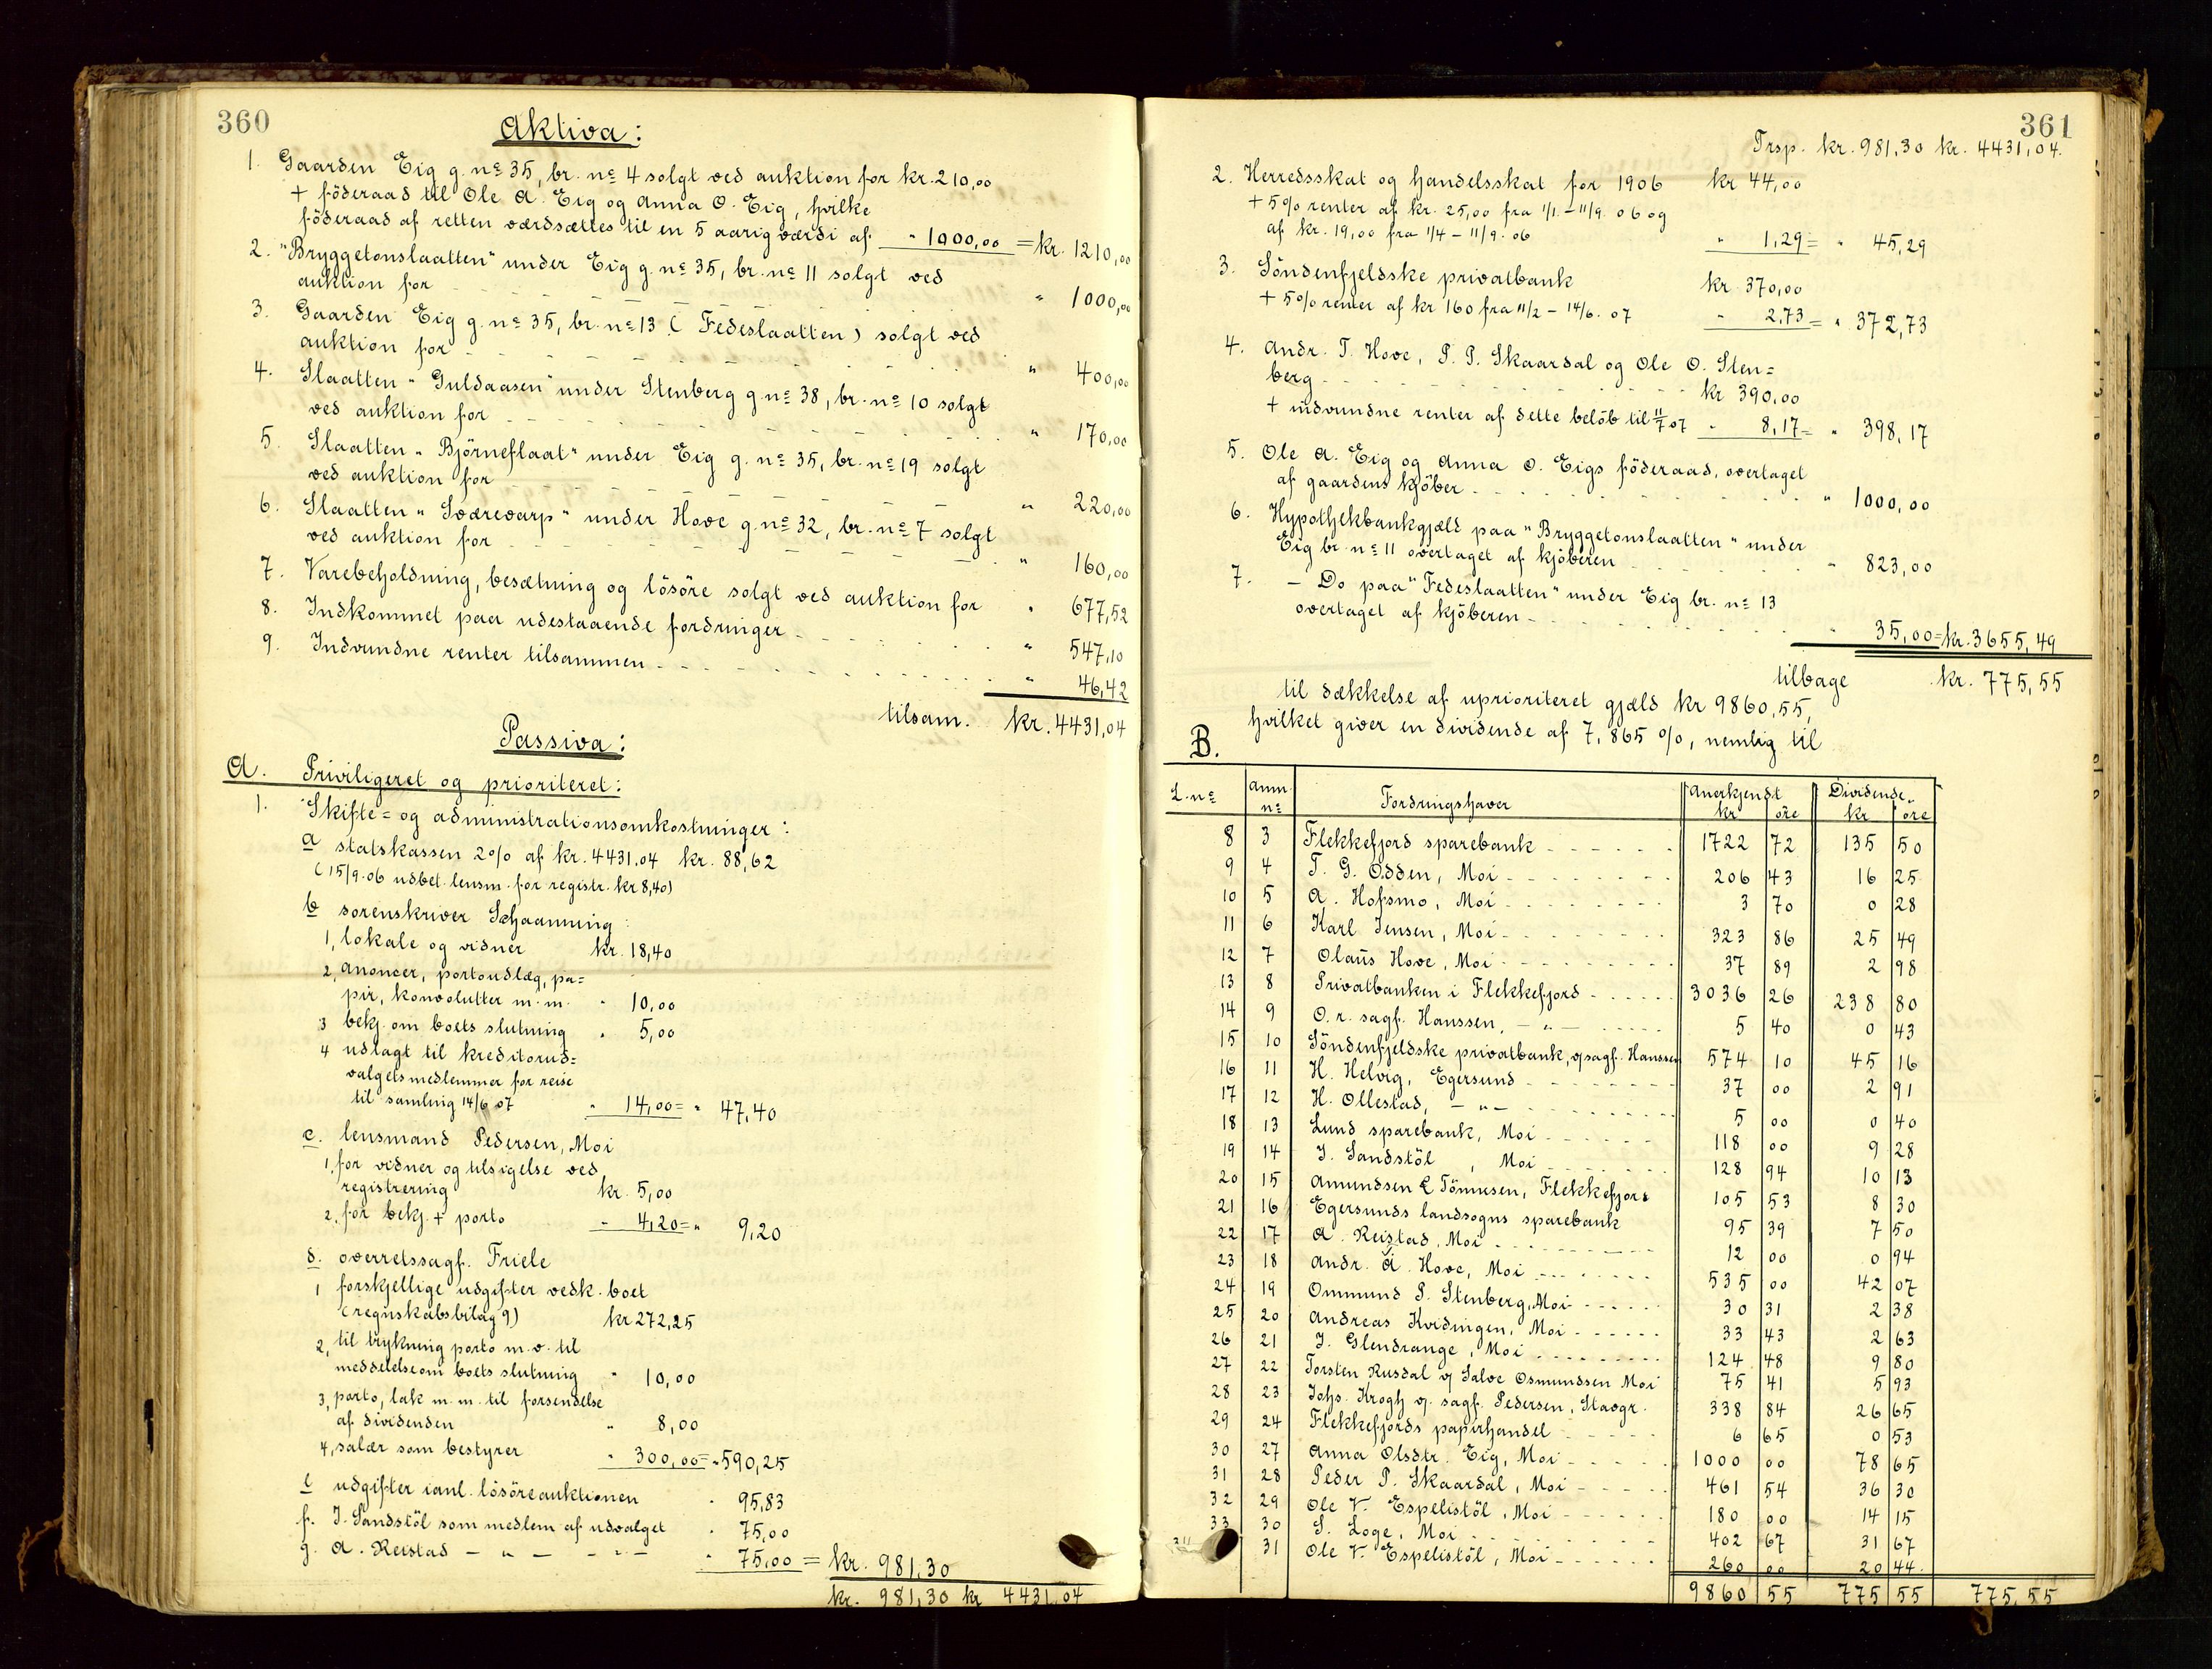 360
Aktiva:
1. Gaarden Eig g. nº 35, br. nº 4 solgt ved auktion for kr. 210,00
+ föderaad til Ole A. Eig og Anna O. Eig, hvilke
föderaad af retten værdsættes til en 5 aarig værdi af " 1000,00 = kr. 1210,00
2. "Bryggetonslaatten" under Eig g. nº 35, br. nº 11 solgt ved
auktion for " 1000,00
3. Gaarden Eig g. nº 35, br. nº 13 (Fedeslaatten) solgt ved
auktion for " 400,00
4. Slaatten "Guldaasen" under Stenberg g nº 38, br. nº 10 solgt
ved auktion for " 170,00
5. Slaatten "Björneflaat" under Eig g. nº 35, br. nº 19 solgt
ved auktion for " 220,00
6. Slaatten "Sværevarp" under Hove g. nº 32, br. nº 7 solgt
ved auktion for " 160,00
7. Varebeholdning, besætning og lösöre solgt ved auktion for " 677,52
8. Indkommet paa udestaaende fordringer " 547,10
9. Indvundne renter tilsammen " 46,42
tilsam. kr. 4431,04
Passiva:
A. Priviligeret og prioriteret:
1. Skifte= og administrationsomkostninger:
a statskassen 2% af kr. 4431.04 kr. 88,62
(15/9.06 udbet. lensm. for registr. kr 8,40)
b sorenskriver Schaanning:
1, lokale og vidner kr. 18,40
2, anoncer, portoudlæg, pa=
pir, konvolutter m. m. " 10,00
3 bekj. om boets slutning " 5,00
4 udlagt til kreditorud=
valgets medlemmer for reise
til samling 14/6 07 " 14,00 = " 47,40
c. lensmand Pedersen, Moi
1, for vidner og tilsigelse ved
registrering kr. 5,00
2, for bekj. + porto " 4,20 = " 9,20
d. overretssagf. Friele
1 forskjellige udgifter vedk. boet
(regnskabsbilag 9) kr 272,25
2, til trykning porto m. v. til
meddelelse om boets slutning " 10,00
3, porto, lak m. m. til forsendelse
af dividenden " 8,00
4, salær som bestyrer " 300,00 = " 590,25
e udgifter ianl. lösöreauktionen " 95,83
f. J. Sandstöl som medlem af udvalget " 75,00
g. A. Reistad – " – – " – " 75,00 = kr. 981,30
kr. 981,30 kr 4431,04
361
Trsp. kr. 981,30 kr. 4431,04.
2. Herredsskat og handelsskat for 1906 kr 44,00
+ 5% renter af kr. 25,00 fra 1/1 – 11/9. 06 og
af kr. 19,00 fra 1/4 – 11/9. 06 " 1,29 = " 45,29
3. Söndenfjeldske privatbank kr. 370,00
+ 5% renter af kr 160 fra 11/2 – 14/6. 07 " 2,73 = " 372,73
4. Andr. T. Hove, P. P. Skaardal og Ole O. Sten=
berg kr 390,00
+ indvundne renter af dette belöb til 11/7 07 " 8,17 = " 398,17
5. Ole A. Eig og Anna O. Eigs föderaad, overtaget
af gaardens kjöber " 1000,00
6. Hypothekbankgjæld paa "Bryggetonslaatten" under
Eig br. nº 11 overtaget af kjöberen " 823,00
7. – Do paa "Fedeslaatten" under Eig br. nº 13
overtaget af kjöberen " 35,00 = kr. 3655,49
tilbage kr. 775,55
til dækkelse af uprioriteret gjæld kr 9860,55,
hvilket giver en dividende af 7,865 %, nemlig til
B.
L. nº Anm. nº Fordringshaver Anerkjendt kr öre Dividende. kr öre
8 3 Flekkefjord sparebank 1722 72 135 50
9 4 T. G. Odden, Moi 206 43 16 25
10 5 A. Hofsmo, Moi 3 70 0 28
11 6 Karl Jensen, Moi 323 86 25 49
12 7 Olaus Hove, Moi 37 89 2 98
13 8 Privatbanken i Flekkefjord 3036 26 238 80
14 9 O. r. sagf. Hanssen, – " – 5 40 0 43
15 10 Söndenfjeldske privatbank, v/sagf. Hanssen 574 10 45 16
16 11 H. Helvig, Egersund 37 00 2 91
17 12 H. Ollestad, – " – 5 00 0 40
18 13 Lund sparebank, Moi 118 00 9 28
19 14 J. Sandstöl, Moi 128 94 10 13
20 15 Amundsen & Tönnesen, Flekkefjord 105 53 8 30
21 16 Egersunds landsogns sparebank 95 39 7 50
22 17 A. Reistad, Moi 12 00 0 94
23 18 Andr. A. Hove, Moi 535 00 42 07
24 19 Ommund P. Stenberg, Moi 30 31 2 38
25 20 Andreas Kvidingen, Moi 33 43 2 63
26 21 J. Glendrange, Moi 124 48 9 80
27 22 Torsten Rusdal v/ Salve Osmundssen Moi 75 41 5 93
28 23 Johs. Krogh v/. sagf. Pedersen, Stavgr. 338 84 26 65
29 24 Flekkefjords papirhandel 6 65 0 53
30 27 Anna Olsdtr. Eig, Moi 1000 00 78 65
31 28 Peder P. Skaardal, Moi 461 54 36 30
32 29 Ole V. Espelistöl, Moi 180 00 14 15
33 30 S. Loge, Moi 402 67 31 67
31 Ole V. Espelistöl, Moi 260 00 20 44
9860 55 775 55 775,55